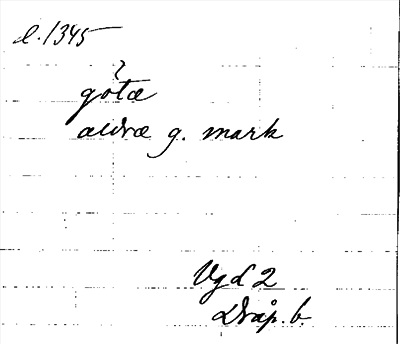 d. 1345
?
götæ
ældræ g. mark
VgL 2
Dråp. b.